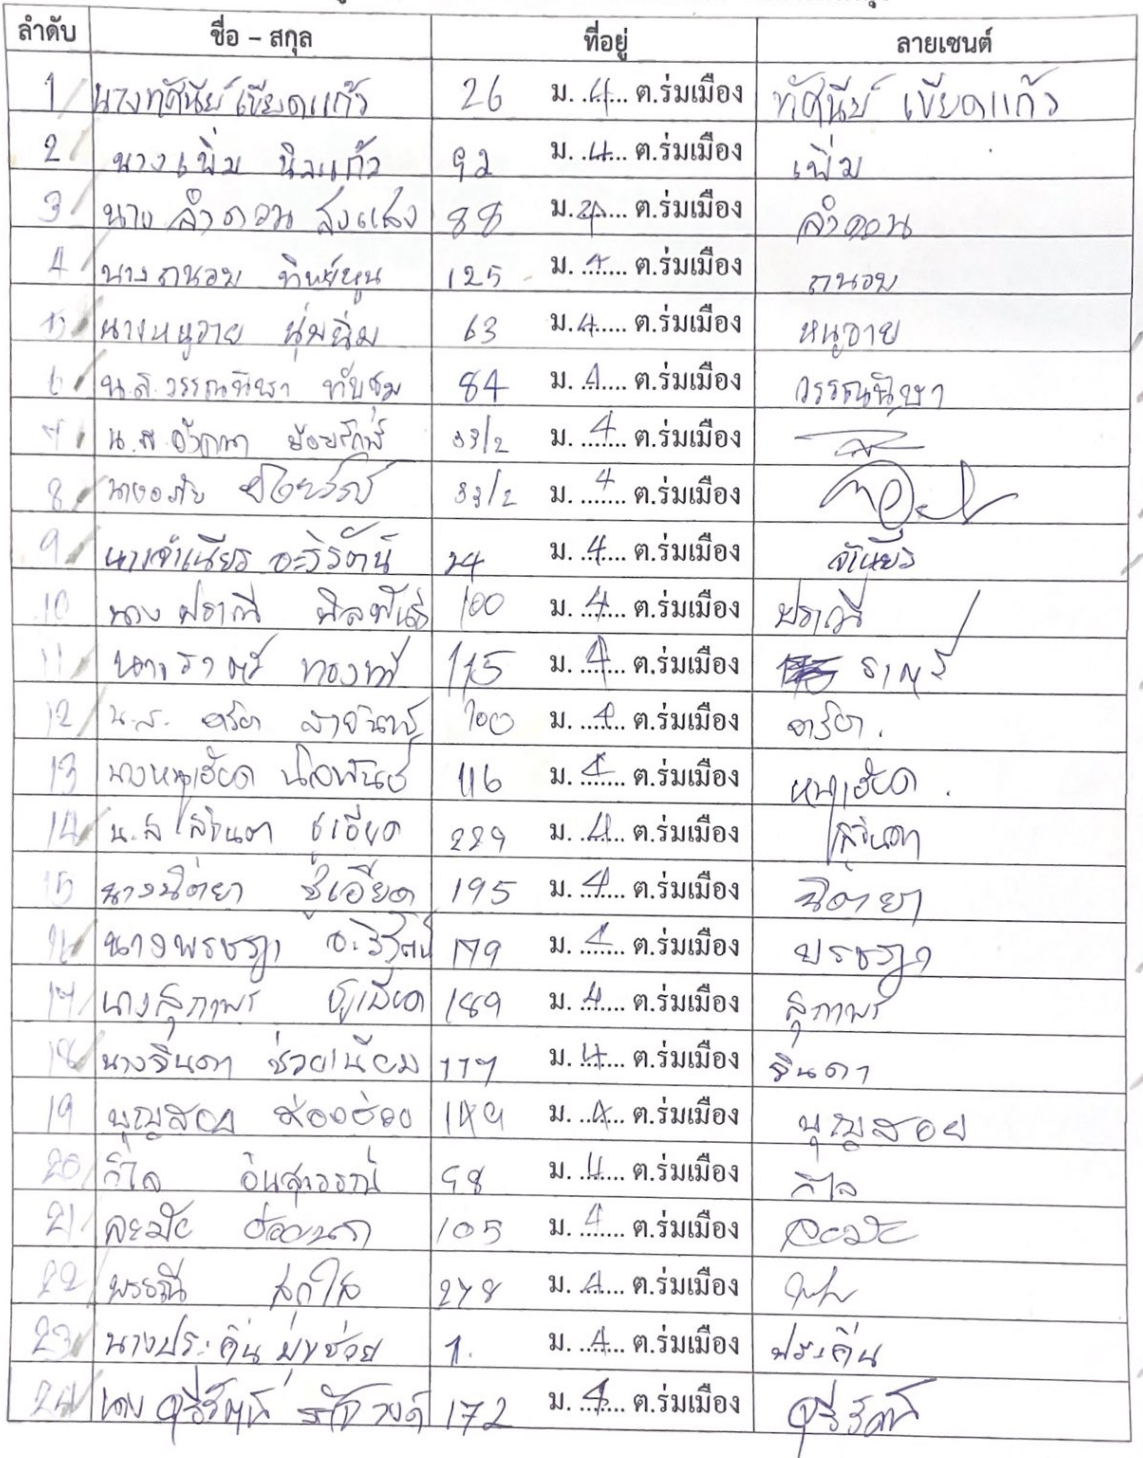 ลำดับ ชื่อ – สกุล ที่อยู่ ลายเซนต์
1 นางทัศนีย์ เขียดแก้ว 26 ม. 4 ต.ร่มเมือง ทัศนีย์ เขียดแก้ว
2 นางเพิ่ม นิลแก้ว 92 ม. 4 ต.ร่มเมือง เพิ่ม
3 นาง ลำดวน สงแสง 88 ม. 4 ต.ร่มเมือง ลำดวน
4 นางถนอม ทิพย์หนูน 125 ม. 4 ต.ร่มเมือง ถนอม
5 นางหนูวาย นุ่มนิ่ม 63 ม. 4 ต.ร่มเมือง หนูวาย
6 น.ส. วรรณนิษา ทับชุม 84 ม. 4 ต.ร่มเมือง วรรณนิษา
7 น.ส. 33/2 ม. 4 ต.ร่มเมือง
8 33/2 ม. 4 ต.ร่มเมือง
9 นางจำเนียร อะริรัตน์ 24 ม. 4 ต.ร่มเมือง จำเนียร
10 นาง ปราณี 100 ม. 4 ต.ร่มเมือง ปราณี
11 นาง ราตรี ทองทวี 115 ม. 4 ต.ร่มเมือง ราตรี
12 น.ส. อาริยา 100 ม. 4 ต.ร่มเมือง อาริยา.
13 นางหนูเอียด นิลพันธ์ 116 ม. 4 ต.ร่มเมือง หนูเอียด.
14 น.ส. ชูเอียด 229 ม. 4 ต.ร่มเมือง
15 นางนิตยา ชูเอียด 195 ม. 4 ต.ร่มเมือง นิตยา
16 นางพรชฎา อะริรัตน์ 179 ม. 4 ต.ร่มเมือง พรชฎา
17 นางสุภาพร ชูเอียด 189 ม. 4 ต.ร่มเมือง สุภาพร
18 นางจินดา ช่วยเนียม 177 ม. 4 ต.ร่มเมือง จินดา
19 บุญสอย 149 ม. 4 ต.ร่มเมือง บุญสอย
20 วิไล อินสุวรรณ์ 98 ม. 4 ต.ร่มเมือง วิไล
21 ละมัย 105 ม. 4 ต.ร่มเมือง ละมัย
22 พรรณี สดใส 278 ม. 4 ต.ร่มเมือง
23 นางประคิ่น 1. ม. 4 ต.ร่มเมือง ประคิ่น
24 นาง สุรีรัตน์ 172 ม. 4 ต.ร่มเมือง สุรีรัตน์